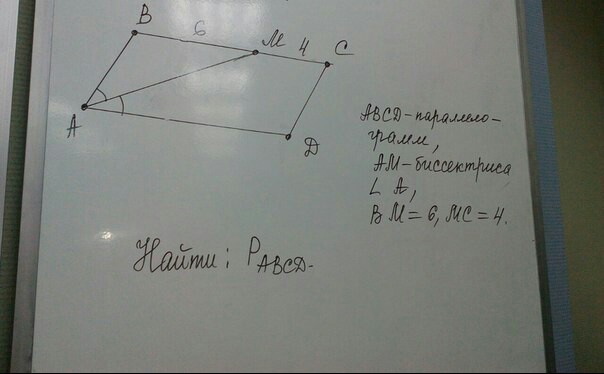 B
6
M
4
C
A
D
ABCD-параллело-
грамм,
AM-биссектриса
∠ A,
BM=6, MC=4.
Найти: P ABCD-